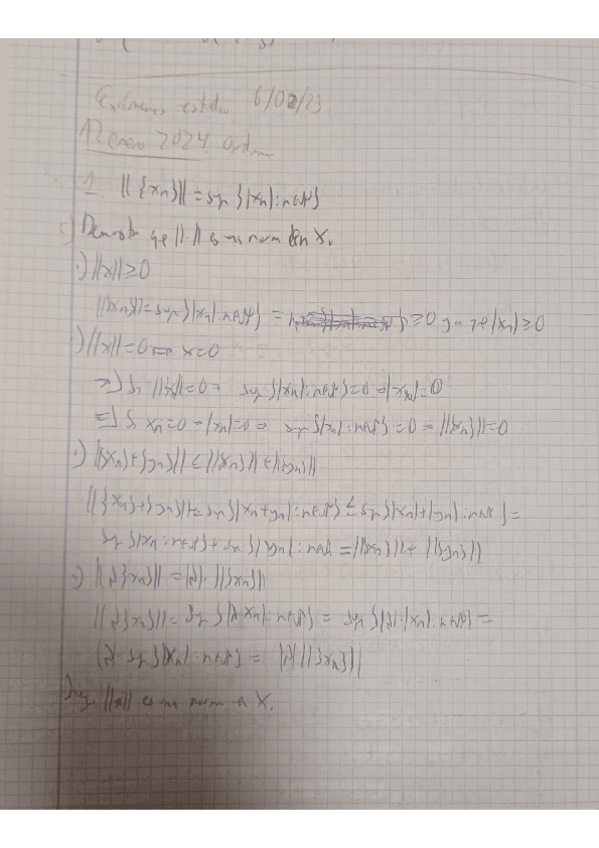 Exámenes 6/02/23
12 enero 2024 Ordin
1. ||{xn}|| = sup{|xn|: n∈ℕ}
c) Demostrar que ||·|| es una norma en X.
·) ||x|| ≥ 0
||{xn}|| = sup{|xn|: n∈ℕ} = ≥ 0 ya que |xn| ≥ 0
·) ||x|| = 0 ⇔ x = 0
⇒] Si ||{x}|| = 0 ⇒ sup{|xn|: n∈ℕ} = 0 ⇒ |xn| = 0
⇐] Si xn = 0 ⇒ |xn| = 0 ⇒ sup{|xn|: n∈ℕ} = 0 ⇒ ||{xn}|| = 0
·) ||{xn}+{yn}|| ≤ ||{xn}|| + ||{yn}||
||{xn}+{yn}|| = sup{|xn+yn|: n∈ℕ} ≤ sup{|xn|+|yn|: n∈ℕ} =
sup{|xn|: n∈ℕ} + sup{|yn|: n∈ℕ} = ||{xn}|| + ||{yn}||
·) ||λ{xn}|| = |λ|·||{xn}||
||λ{xn}|| = sup{|λ·xn|: n∈ℕ} = sup{|λ|·|xn|: n∈ℕ} =
|λ|·sup{|xn|: n∈ℕ} = |λ|·||{xn}||
Luego ||x|| es una norma en X.